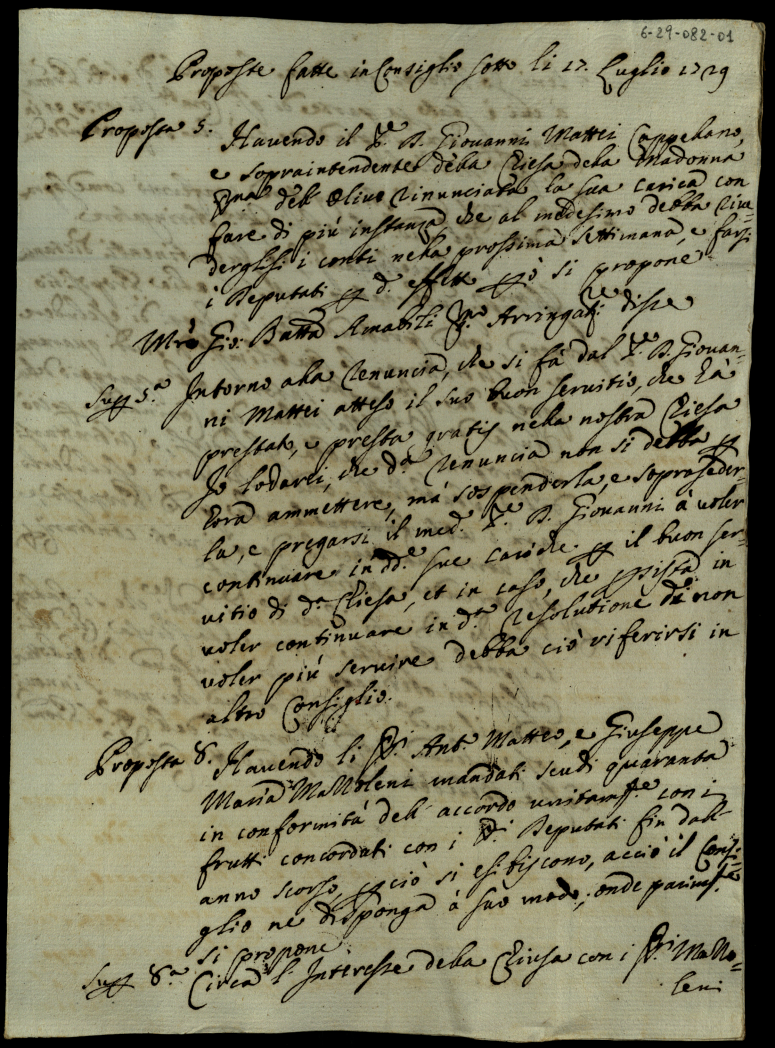 6-29-082-01
Proposte fatte in Consiglio sotto li 17. Luglio 1729
Proposta 5. Havendo il Sr. D. Giovanni Mattei Cappellano,
e sopraintendente della Chiesa della Madonna
SSma dell' Olivo rinunciata la sua carica con
fare di più instanza, che al medesimo debba rive=
derglisi i conti nella prossima settimana, e farsi
i Deputati per d.º effetto perciò si propone
Mro Gio: Batta Amabili Arringate disse
Supp 5.ª Intorno alla renuncia, che si fà dal Sr. D. Giovan=
ni Mattei atteso il suo buon servitio, che hà
prestato, e presta gratis nella nostra Chiesa
Io lodarei, che d.ª renuncia non si debba per
hora ammettere, mà sospenderla, e soprasseder=
la, e pregarsi il med.º Sr. D. Giovanni à voler
continuare in dd.e sue cariche per il buon ser=
vitio di d.ª Chiesa, et in caso, che persista in
voler continuare in d.ª resolutione di non
voler più servire debba ciò riferirsi in
altro Consiglio.
Proposta 8. Havendo li SSri Ant.º Matteo, e Giuseppe
Maria mandati scudi quaranta
in conformità dell' accordo unitamte con i
frutti concordati con i SSri Deputati fin dall'
anno scorso, perciò si esibiscono, acciò il Consi=
glio ne disponga à suo modo; onde parimte
si propone
Supp 8.ª Circa l' Interesse della Chiesa con i SSri
leni